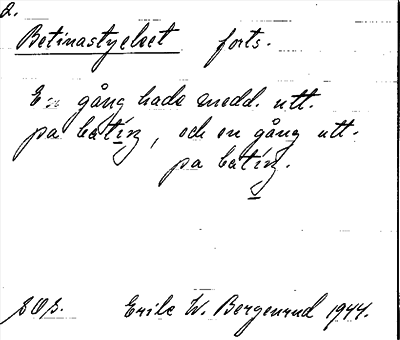 2.
Betinastycket forts.
En gång hade medd. utt.
pa batinz, och en gång utt.
pa batinz.
Eric W. Bergenrud 1944.